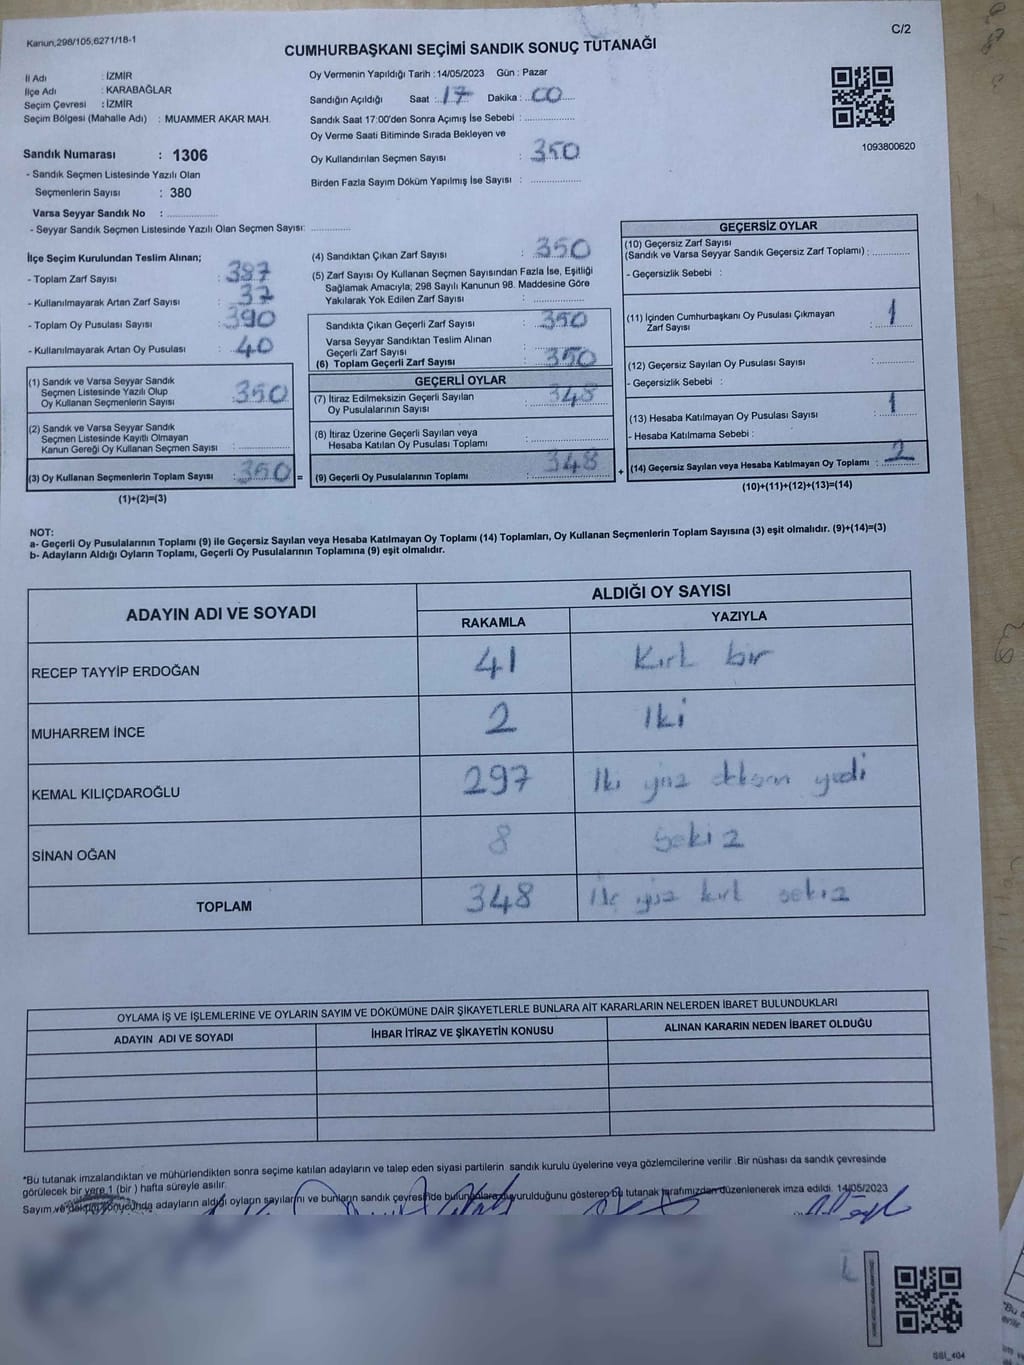 Kanun,298/105,6271/18-1
C/2
CUMHURBAŞKANI SEÇİMİ SANDIK SONUÇ TUTANAĞI
İl Adı : İZMİR
İlçe Adı : KARABAĞLAR
Seçim Çevresi : İZMİR
Seçim Bölgesi (Mahalle Adı) : MUAMMER AKAR MAH.
Sandık Numarası : 1306
- Sandık Seçmen Listesinde Yazılı Olan
Seçmenlerin Sayısı : 380
Varsa Seyyar Sandık No : ................
- Seyyar Sandık Seçmen Listesinde Yazılı Olan Seçmen Sayısı: ............
Oy Vermenin Yapıldığı Tarih :14/05/2023 Gün : Pazar
Sandığın Açıldığı Saat :17 Dakika :00
Sandık Saat 17:00'den Sonra Açımış İse Sebebi : ................
Oy Verme Saati Bitiminde Sırada Bekleyen ve
Oy Kullandırılan Seçmen Sayısı : 350
Birden Fazla Sayım Döküm Yapılmış İse Sayısı : ................
1093800620
İlçe Seçim Kurulundan Teslim Alınan;
- Toplam Zarf Sayısı : 387
- Kullanılmayarak Artan Zarf Sayısı : 37
- Toplam Oy Pusulası Sayısı : 390
- Kullanılmayarak Artan Oy Pusulası : 40
(1) Sandık ve Varsa Seyyar Sandık
Seçmen Listesinde Yazılı Olup
Oy Kullanan Seçmenlerin Sayısı :350
(2) Sandık ve Varsa Seyyar Sandık
Seçmen Listesinde Kayıtlı Olmayan
Kanun Gereği Oy Kullanan Seçmen Sayısı : ................
(3) Oy Kullanan Seçmenlerin Toplam Sayısı : 350 =
(1)+(2)=(3)
(4) Sandıktan Çıkan Zarf Sayısı : 350
(5) Zarf Sayısı Oy Kullanan Seçmen Sayısından Fazla İse, Eşitliği
Sağlamak Amacıyla; 298 Sayılı Kanunun 98. Maddesine Göre
Yakılarak Yok Edilen Zarf Sayısı : ................
Sandıkta Çıkan Geçerli Zarf Sayısı : 350
Varsa Seyyar Sandıktan Teslim Alınan
Geçerli Zarf Sayısı : ................
(6) Toplam Geçerli Zarf Sayısı : 350
GEÇERLİ OYLAR
(7) İtiraz Edilmeksizin Geçerli Sayılan
Oy Pusulalarının Sayısı : 348
(8) İtiraz Üzerine Geçerli Sayılan veya
Hesaba Katılan Oy Pusulası Toplamı : ................
(9) Geçerli Oy Pusulalarının Toplamı : 348 +
GEÇERSİZ OYLAR
(10) Geçersiz Zarf Sayısı
(Sandık ve Varsa Seyyar Sandık Geçersiz Zarf Toplamı) : ............
- Geçersizlik Sebebi :
(11) İçinden Cumhurbaşkanı Oy Pusulası Çıkmayan
Zarf Sayısı : 1
(12) Geçersiz Sayılan Oy Pusulası Sayısı : ............
- Geçersizlik Sebebi :
(13) Hesaba Katılmayan Oy Pusulası Sayısı : 1
- Hesaba Katılmama Sebebi :
(14) Geçersiz Sayılan veya Hesaba Katılmayan Oy Toplamı : 2
(10)+(11)+(12)+(13)=(14)
NOT:
a- Geçerli Oy Pusulalarının Toplamı (9) ile Geçersiz Sayılan veya Hesaba Katılmayan Oy Toplamı (14) Toplamları, Oy Kullanan Seçmenlerin Toplam Sayısına (3) eşit olmalıdır. (9)+(14)=(3)
b- Adayların Aldığı Oyların Toplamı, Geçerli Oy Pusulalarının Toplamına (9) eşit olmalıdır.
ADAYIN ADI VE SOYADI
ALDIĞI OY SAYISI
RAKAMLA YAZIYLA
RECEP TAYYİP ERDOĞAN 41 Kırk bir
MUHARREM İNCE 2 Iki
KEMAL KILIÇDAROĞLU 297 Iki yüz doksan yedi
SİNAN OĞAN 8 Sekiz
TOPLAM 348 üç yüz kırk sekiz
OYLAMA İŞ VE İŞLEMLERİNE VE OYLARIN SAYIM VE DÖKÜMÜNE DAİR ŞİKAYETLERLE BUNLARA AİT KARARLARIN NELERDEN İBARET BULUNDUKLARI
ADAYIN ADI VE SOYADI
İHBAR İTİRAZ VE ŞİKAYETİN KONUSU
ALINAN KARARIN NEDEN İBARET OLDUĞU
*Bu tutanak imzalandıktan ve mühürlendikten sonra seçime katılan adayların ve talep eden siyasi partilerin sandık kurulu üyelerine veya gözlemcilerine verilir .Bir nüshası da sandık çevresinde
görülecek bir yere 1 (bir ) hafta süreyle asılır.
Sayım ve döküm sonucunda adayların aldığı oyların sayılarını ve bunların sandık çevresinde bulunanlara duyurulduğunu gösteren bu tutanak tarafımızdan düzenlenerek imza edildi. 14/05/2023
SSI_404